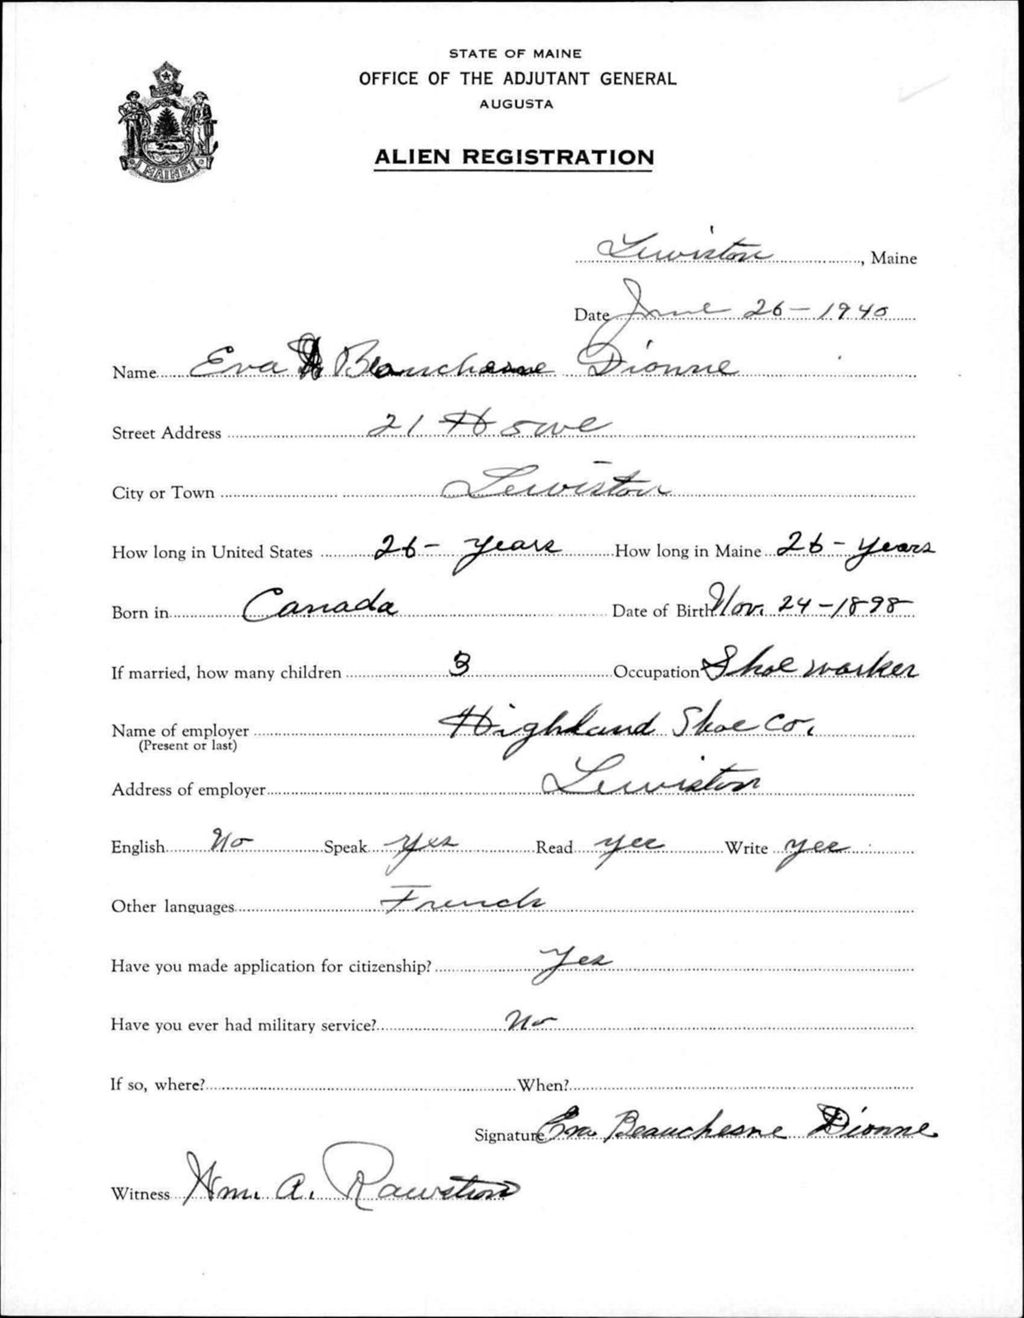 STATE OF MAINE
OFFICE OF THE ADJUTANT GENERAL
AUGUSTA
ALIEN REGISTRATION
MAINE
Lewiston, Maine
Date June 26-1940
Name Eva Beauchesne Dionne
Street Address 21 Howe
City or Town Lewiston
How long in United States 26-years How long in Maine 26-years
Born in Canada Date of Birth Nov. 24-1898
If married, how many children 3 Occupation Shoe worker
Name of employer Highland Shoe Co.
(Present or last)
Address of employer Lewiston
English No Speak yes Read yes Write yes
Other languages French
Have you made application for citizenship? Yes
Have you ever had military service? No
If so, where? When?
Signature Eva Beauchesne Dionne
Witness Wm. A. Rawstron